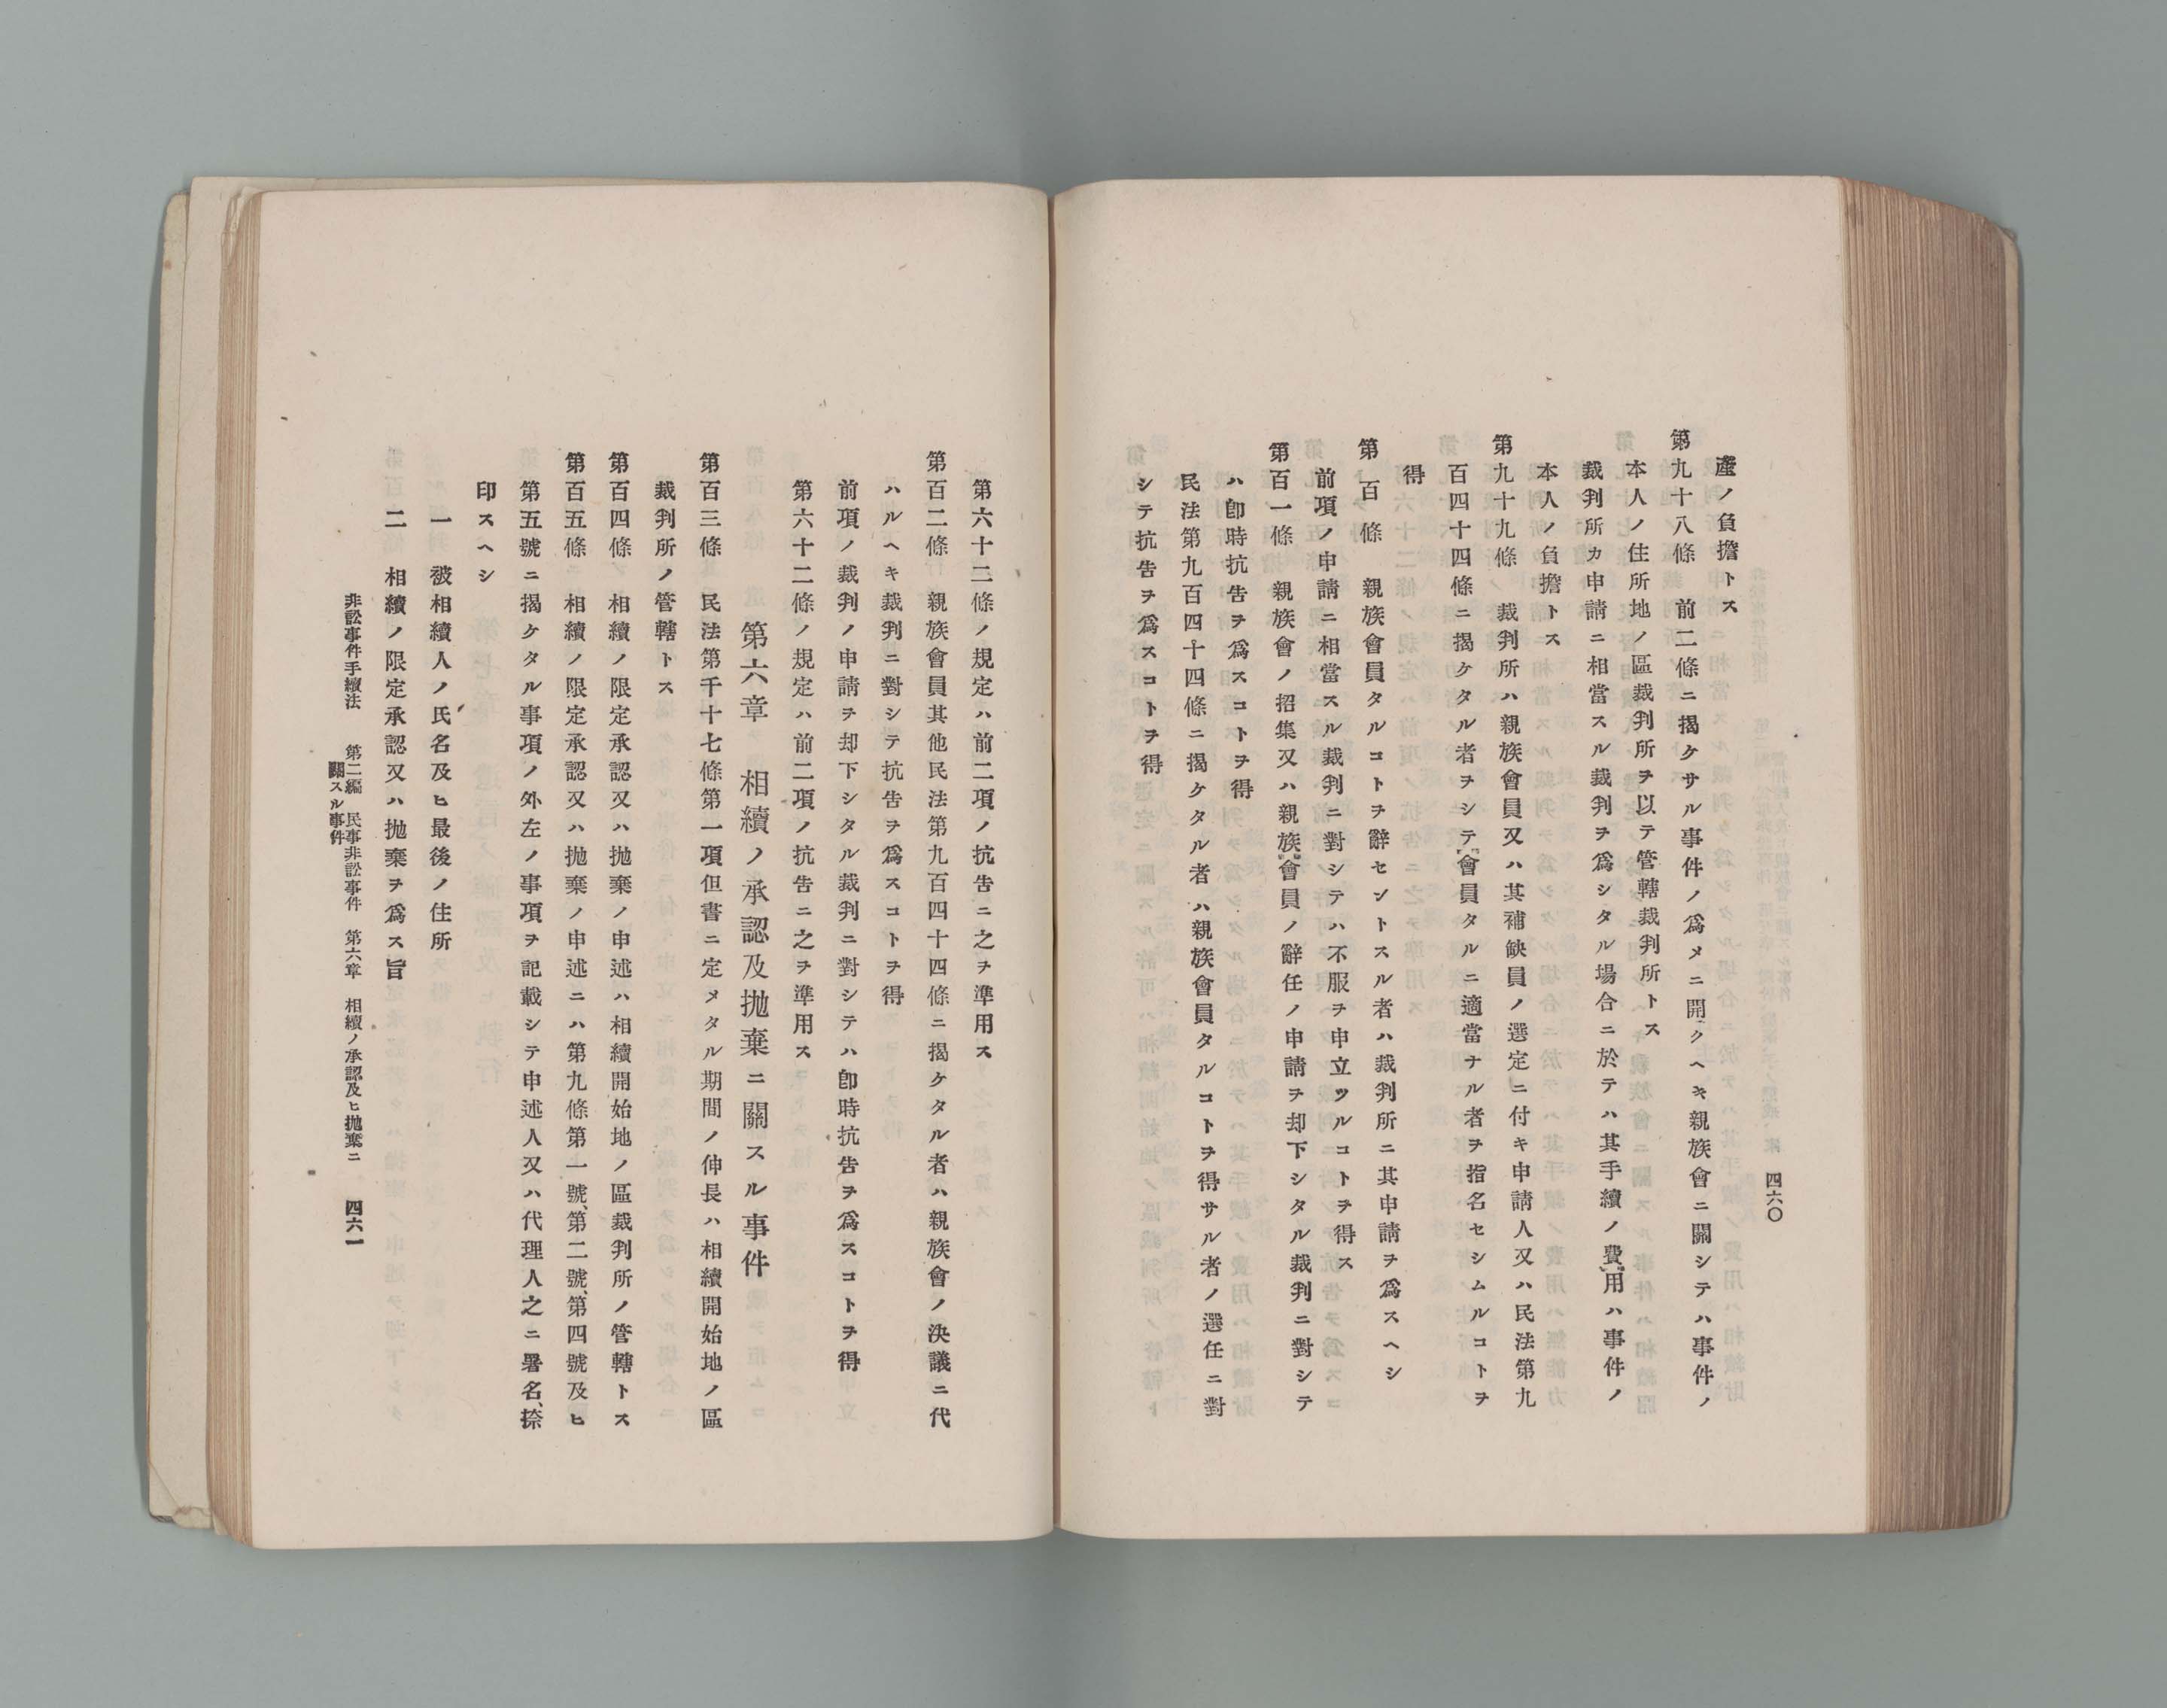 產ノ負擔トス
第九十八條　前二條ニ揭ケサル事件ノ爲メニ開クヘキ親族會ニ關シテハ事件ノ
本人ノ住所地ノ區裁判所ヲ以テ管轄裁判所トス
裁判所カ申請ニ相當スル裁判ヲ爲シタル場合ニ於テハ其手續ノ費用ハ事件ノ
本人ノ負擔トス
第九十九條　裁判所ハ親族會員又ハ其補缺員ノ選定ニ付キ申請人又ハ民法第九
百四十四條ニ揭ケタル者ヲシテ會員タルニ適當ナル者ヲ指名セシムルコトヲ
得
第百條　親族會員タルコトヲ辭セントスル者ハ裁判所ニ其申請ヲ爲スヘシ
前項ノ申請ニ相當スル裁判ニ對シテハ不服ヲ申立ツルコトヲ得ス
第百一條　親族會ノ招集又ハ親族會員ノ辭任ノ申請ヲ却下シタル裁判ニ對シテ
ハ卽時抗告ヲ爲スコトヲ得
民法第九百四十四條ニ揭ケタル者ハ親族會員タルコトヲ得サル者ノ選任ニ對
シテ抗告ヲ爲スコトヲ得
四六〇
第六十二條ノ規定ハ前二項ノ抗告ニ之ヲ準用ス
第百二條　親族會員其他民法第九百四十四條ニ揭ケタル者ハ親族會ノ決議ニ代
ハルヘキ裁判ニ對シテ抗告ヲ爲スコトヲ得
前項ノ裁判ノ申請ヲ却下シタル裁判ニ對シテハ卽時抗告ヲ爲スコトヲ得
第六十二條ノ規定ハ前二項ノ抗告ニ之ヲ準用ス
第六章　相續ノ承認及拋棄ニ關スル事件
第百三條　民法第千十七條第一項但書ニ定メタル期間ノ伸長ハ相續開始地ノ區
裁判所ノ管轄トス
第百四條　相續ノ限定承認又ハ拋棄ノ申述ハ相續開始地ノ區裁判所ノ管轄トス
第百五條　相續ノ限定承認又ハ拋棄ノ申述ニハ第九條第一號、第二號、第四號及ヒ
第五號ニ揭ケタル事項ノ外左ノ事項ヲ記載シテ申述人又ハ代理人之ニ署名、捺
印スヘシ
一　被相續人ノ氏名及ヒ最後ノ住所
二　相續ノ限定承認又ハ拋棄ヲ爲ス旨
非訟事件手續法　第二編　民事非訟事件　第六章　相續ノ承認及ヒ拋棄ニ
關スル事件
四六一